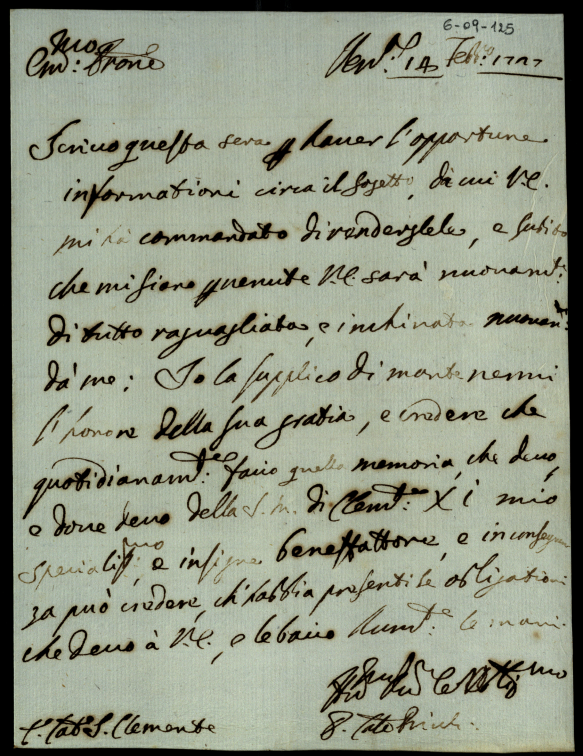 6-09-125
14 Febb.o 1727
Scriuo questa sera p hauer l'opportune
informationi circa il sogetto, di cui V.E.
mi hà commandato di renderglele, e subito
che mi siano peruenute V.E. sarà nuouam.te
di tutto raguagliata, e inchinata nuouam.te
dà me; Io la supplico di mantenermi
l'honore della sua gratia, e credere che
quotidianam.te faccio quella memoria, che deuo,
e doue deuo della S. M. di Clem.te XI mio
specialiss.mo, e insigne benefattore, e in consequen
za può credere, ch'habbia presenti le obligationi
che deuo à V.E., e le bacio hum.te le mani
S. Clemente